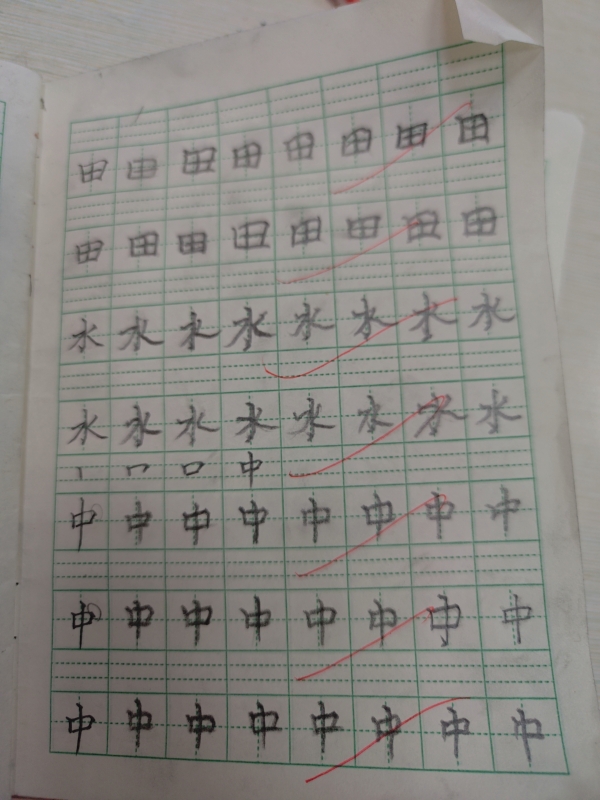 田 田 田 田 田 田 田 田
田 田 田 田 田 田 田 田
水 水 水 水 水 水 水 水
水 水 水 水 水 水 水 水
丨 𠃍 口 中
中 中 中 中 中 中 中 中
中 中 中 中 中 中 中 中
中 中 中 中 中 中 中 中